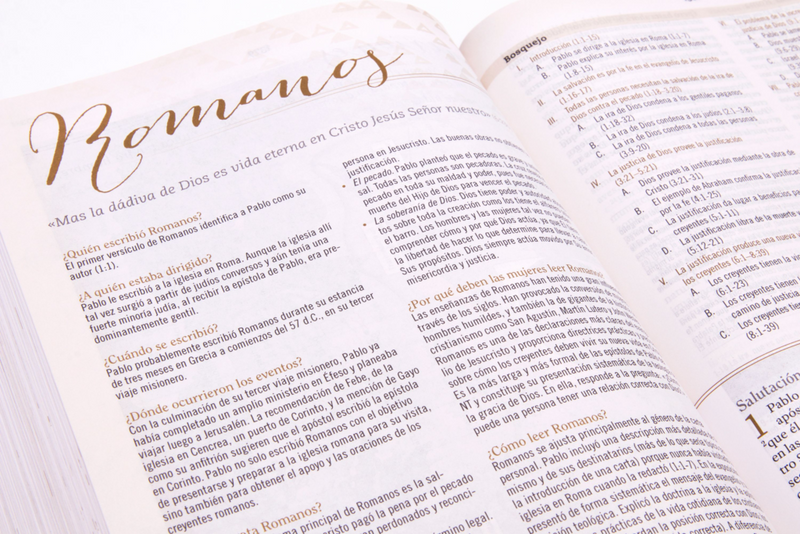 Romanos
«Mas la dádiva de Dios es vida eterna en Cristo Jesús Señor nuestro
¿Quién escribió Romanos?
El primer versículo de Romanos identifica a Pablo como su
autor (1.1).
¿A quién estaba dirigido?
Pablo le escribió a la iglesia en Roma. Aunque la iglesia allí
tal vez surgió a partir de judíos conversos y aún tenía una
fuerte minoría judía, al recibir la epístola de Pablo, era pre-
dominantemente gentil.
¿Cuándo se escribió?
Pablo probablemente escribió Romanos durante su estancia
de tres meses en Grecia a comienzos del 57 d.C., en su tercer
viaje misionero.
¿Dónde ocurrieron los eventos?
Con la culminación de su tercer viaje misionero, Pablo ya
había completado un amplio ministerio en Éfeso y planeaba
viajar luego a Jerusalén. La recomendación de Febe, de la
iglesia en Cencrea, un puerto de Corinto, y la mención de Gayo
como su anfitrión sugieren que el apóstol escribió la epístola
en Corinto. Pablo no solo escribió Romanos con el objetivo
de presentarse y preparar a la iglesia romana para su visita,
sino también para obtener el apoyo y las oraciones de los
creyentes romanos.
ta Romanos?
ma principal de Romanos es la sal-
cristo pagó la pena por el pecado
en perdonados y reconci-
término legal.
persona en Jesucristo. Las buenas obras no
justificación.
El pecado. Pablo planteó que el pecado es
sal. Todas las personas son pecadoras.
pecado en toda su maldad y poder, pues fue
muerte del Hijo de Dios para vencer el pecado
La soberanía de Dios. Dios tiene poder y
tos sobre toda la creación como los tiene el
el barro. Los hombres y las mujeres tal vez no
comprender cómo y por qué Dios actúa, ya que
la libertad de hacer lo que determine para
Sus propósitos. Dios siempre actúa movido por
misericordia y justicia.
¿Por qué deben las mujeres leer Romanos?
Las enseñanzas de Romanos han tenido una gran
través de los siglos. Han provocado la conversión
hombres humildes, y también la de gigantes de
cristianismo como San Agustín, Martín Lutero y
Romanos es una de las declaraciones más claras
lio de Jesucristo y proporciona directrices prácticas
sobre cómo los creyentes deben vivir su nueva
Es la más larga y más formal de las epístolas de
NT y constituye su presentación sistemática de
la gracia de Dios. En ella, responde a la pregunta
puede una persona tener una relación correcta
¿Cómo leer Romanos?
Romanos se ajusta principalmente al género de la
personal. Pablo incluyó una descripción más detallada
mismo y de sus destinatarios (más de lo que sería
la introducción de una carta) porque nunca había
iglesia en Roma cuando la redactó (1.1-7). En la
presentó de forma sistemática el mensaje del
visión teológica. Explicó la doctrina a la iglesia
prácticas de la vida cotidiana de los
la posición correcta con
correcta). A diferencia
Bosquejo
I. Introducción (1.1-15)
A. Pablo se dirige a la iglesia en Roma (1.1-7)
B. Pablo explica su interés por la iglesia en Roma
(1.8-15)
II. La salvación es por la fe en el evangelio de Jesucristo
(1.16-17)
III. Todas las personas necesitan la salvación de la ira de
Dios contra el pecado (1.18–3.20)
A. La ira de Dios condena a los gentiles paganos
(1.18-32)
B. La ira de Dios condena a los judíos (2.1–3.8)
C. La ira de Dios condena a todas las personas
(3.9-20)
IV. La justicia de Dios provee la justificación
(3.21–5.21)
A. Dios provee la justificación mediante la obra de
Cristo (3.21-31)
B. El ejemplo de Abraham confirma la justificación
por la fe (4.1-25)
C. La justificación da lugar a beneficios para
creyentes (5.1-11)
D. La justificación libra de la muerte
(5.12-21)
V. La justificación produce una nueva
los creyentes (6.1–8.39)
A. Los creyentes tienen la
(6.1-23)
B. Los creyentes tienen
camino de justicia
C. Los creyentes tienen
(8.1-39)
Salutación
1 Pablo
após
que él
en las
tro se